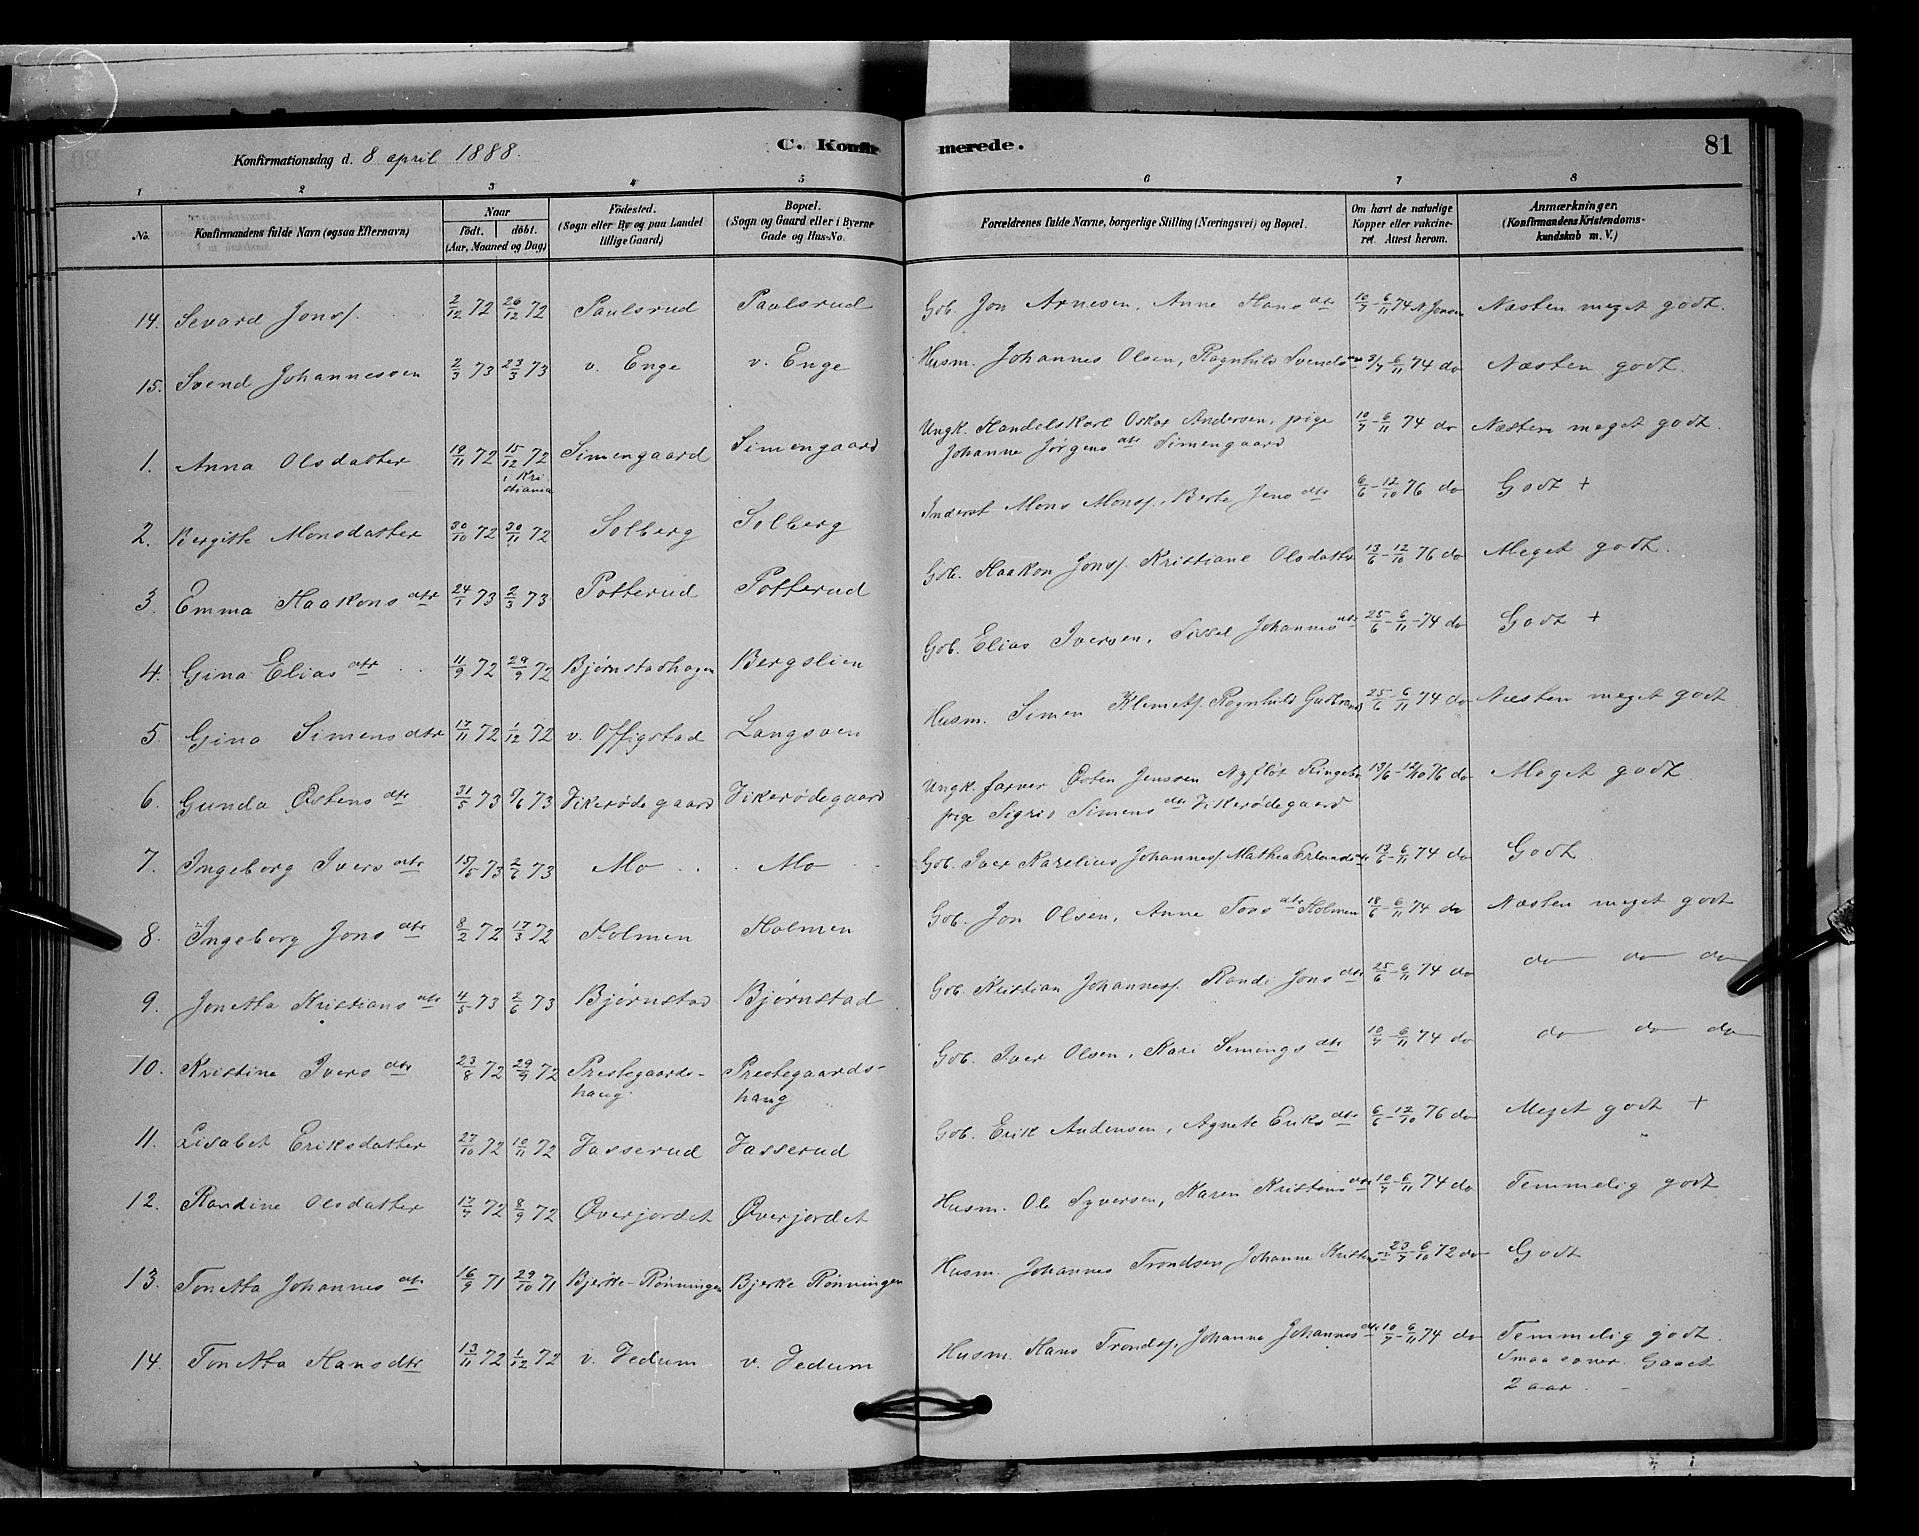 Konfirmationsdag d. 8 april 1888.
C. Konfirmerede.
81
1 2 3 4 5 6 7 8
No.
Konfirmandens fulde Navn (ogsaa Efternavn)
Naar
født. døbt.
(Aar, Maaned og Dag)
Fødested.
(Sogn eller By og paa Landet
tillige Gaard)
Bopæl.
(Sogn og Gaard eller i Byerne
Gade og Hus-No.
Forældrenes fulde Navne, borgerlige Stilling (Næringsvei) og Bopæl.
Om havt de naturlige
Kopper eller vakcine-
ret. Attest herom.
Anmærkninger.
(Konfirmandens Kristendoms-
kundskab m. V.)
14. Sevard Jonsf. 2/12 72 26/12 72 Paulsrud Paulsrud Gob. Jon Arnesen, Anne Hans dtr 10/7 - 6/11 74 Næsten meget godt.
15. Svend Johannesven 2/3 73 23/3 73 v. Enge v. Enge Husm. Johannes Olsen, Ragnhild Svends dtr 3/7 6/11 74 do Næsten godt.
1. Anna Olsdatter 19/11 72 15/12 72 i Kristiania Simengaard Simengaard Ungk. Handelskarl Oskar Andersen, pige 10/7 - 6/11 74 do Næsten meget godt.
Johanne Jørgens dtr Simengaard
2. Bergitte Monsdatter 30/10 72 30/11 72 Solberg Solberg Inderst Mons Monsf. Berte Jens dtr 6/6 - 12/10 76 do Godt +
3. Emma Haakons dtr 24/1 73 2/3 73 Potterud Potterud Gob. Haakon Jonsf. Kristiane Olsdatter 13/6 - 12/10 76 do Meget godt.
4. Gina Elias dtr 11/9 72 29/9 72 Bjørnstadhagen Bergslien Gob. Elias Iversen, Sissel Johannes dtr 25/6 - 6/11 - 74 do Godt +
5. Gina Simens dtr 17/11 72 1/12 72 v. Offigstad Langsven Husm. Simen Klemetsf. Ragnhild Gudbrands 25/6 - 6/11 74 do Næsten meget godt
6. Gunda Østens dtr 31/5 73 73 Vikerødegaard Vikerødegaard Ungk. farver Østen Jenssen Nyfløt Ringebu 13/6 - 12/10 76 do Meget godt.
pige Sigrid Simens dtr Vikerødegaard
7. Ingeborg Ivers dtr 15/5 73 2/6 73 Mo Mo Gob. Iver Karelius Johannesf. Mathea Erlands dtr 13/6 - 6/11 74 do Godt.
8. Ingeborg Jons dtr 8/2 72 17/3 72 Holmen Holmen Gob. Jon Olsen, Anne Tors dtr Holmen 18/6 - 6/11 74 do Næsten meget godt
9. Jonetta Kristians dtr 4/5 73 2/6 73 Bjørnstad Bjørnstad Gob. Kristian Johannesf. Randi Jons dtr 25/6 - 6/11 74 do do do do
10. Kristine Ivers dtr 23/8 72 29/9 72 Prestegaards-haug. Prestegaards-haug Gob. Iver Olsen, Kari Semings dtr 10/7 - 6/11 74 do do do do
11. Lisabet Eriksdatter 27/10 72 10/11 72 Jasserud Jasserud Gob. Erik Andersen, Agnete Eriks dtr 6/6 - 12/10 76 do Meget godt +
12. Randine Olsdatter 17/7 72 8/9 72 Øverjordet Øverjordet Husm. Ole Syversen, Karen Kristens dtr 10/7 - 6/11 74 do Temmelig godt
13. Tonetta Johannes dtr 16/9 71 29/10 71 Bjerke-Rønningen Bjerke Rønningen Husm. Johannes Trondsen, Johanne 23/7 - 6/10 72 do Godt
14. Tonetta Hans dtr 13/11 72 1/12 72 v. Jedum v. Jedum Husm. Hans Trondsf. Johanne Johannes dtr 10/7 - 6/11 74 do Temmelig godt.
Smaa evner. Gaaet
2 aar.